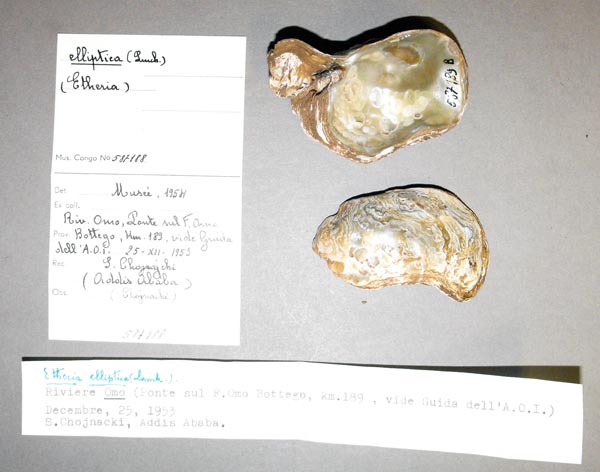 elliptica (Lmk.)
(Etheria)
Mus. Congo No 587188
Det. Musée, 1954
Ex coll.
Riv. Omo, Ponte sul F. Omo
Prov. Bottego, Km. 189, vide Guida
dell'A.O.I. 25-XII-1953
Rec. S. Chojnacki
(Addis Ababa)
Obs. (Chojnacki)
587188
587189 B
Etheria elliptica (Lamk.).
Riviere Omo (Ponte sul F.Omo Bottego, km.189 , vide Guida dell'A.O.I.)
Decembre, 25, 1953
S.Chojnacki, Addis Ababa.